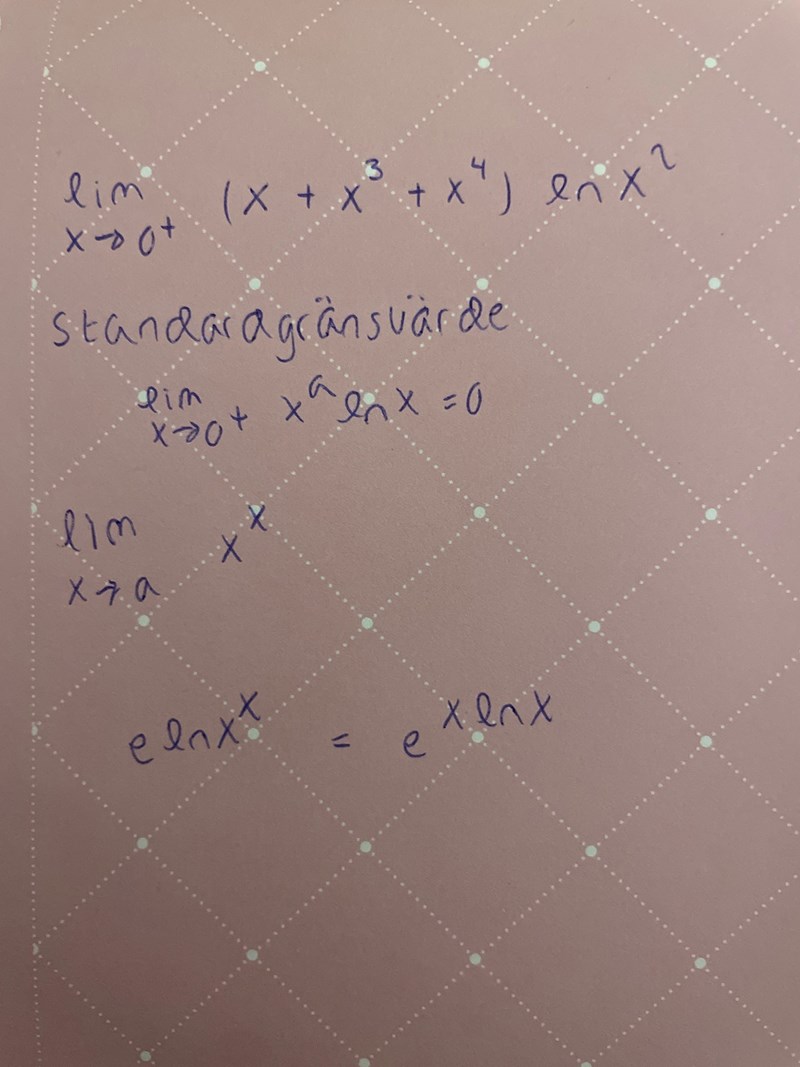 lim (x + x³ + x⁴) ln x²
x→0⁺
standardgränsvärde
lim xᵃ ln x = 0
x→0⁺
lim xˣ
x→a
e ln xˣ = e^(x ln x)